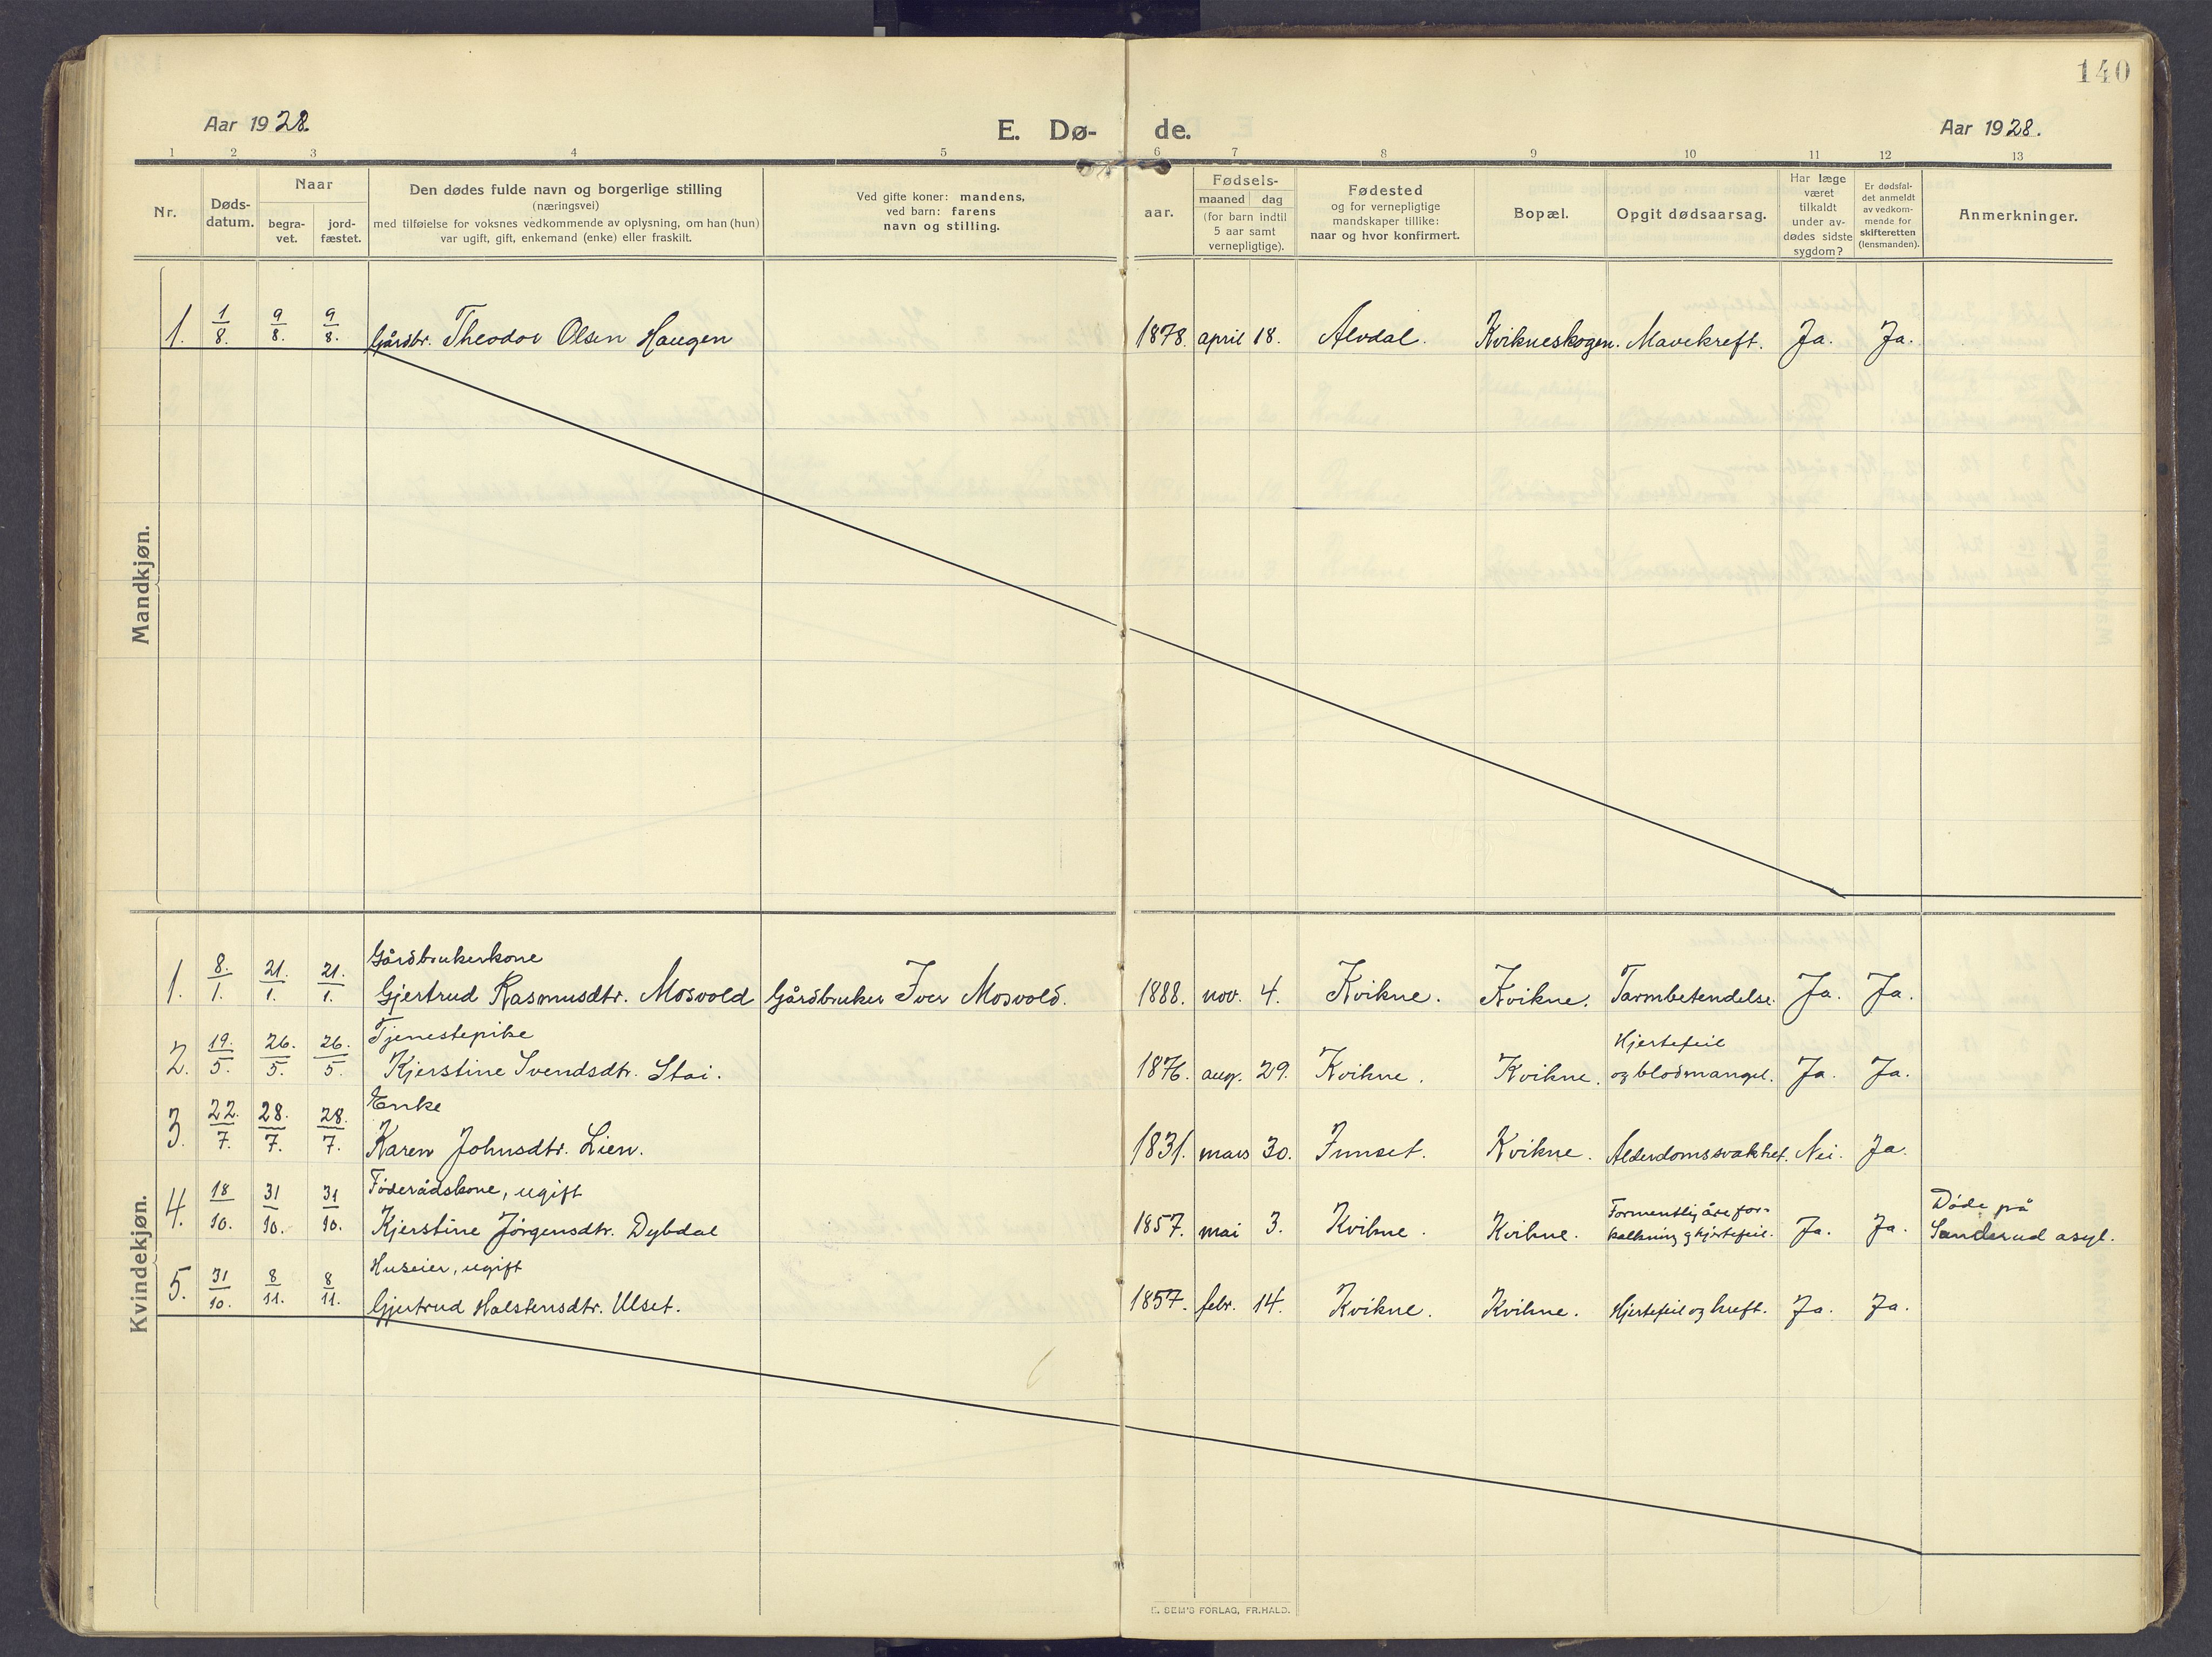 140
Aar 1928.
E. Dø- de.
Aar 1928.
1 2 3 4 5 6 7 8 9 10 11 12 13
Nr.
Døds-
datum.
Naar
begra-
vet.
jord-
fæstet.
Den dødes fulde navn og borgerlige stilling
(næringsvei)
med tilføielse for voksnes vedkommende av oplysning, om han (hun)
var ugift, gift, enkemand (enke) eller fraskilt.
Ved gifte koner: mandens,
ved barn: farens
navn og stilling.
aar.
Fødsels-
maaned dag
(for barn indtil
5 aar samt
vernepligtige).
Fødested
og for vernepligtige
mandskaper tillike:
naar og hvor konfirmert.
Bopæl.
Opgit dødsaarsag.
Har læge
været
tilkaldt
under av-
dødes sidste
sygdom?
Er dødsfal-
det anmeldt
av vedkom-
mende for
skifteretten
(lensmanden).
Anmerkninger.
Mandkjøn.
1. 1/8. 9/8. 9/8. Gårdbr. Theodor Olsen Haugen 1878. april 18. Alvdal. Kvikneskogen. Mavekreft. Ja. Ja.
Kvindekjøn.
Gårdbrukerkone
1. 8./1. 21./1. 21./1. Gjertrud Rasmusdtr. Mosvold Gårdbruker Iver Mosvold. 1888. nov. 4. Kvikne. Kvikne. Tarmbetendelse. Ja. Ja.
Tjenestepike Hjertefeil
2. 19./5. 26./5. 26./5. Kjerstine Svendsdtr. Stai. 1876. aug. 29. Kvikne. Kvikne. og blodmangel. Ja. Ja.
Enke
3. 22./7. 28./7. 28./7. Karen Johnsdtr. Lien. 1831. mars 30. Innset. Kvikne. Alderdomssvakhet. Nei. Ja.
Føderådskone, ugift Formentlig årefor- Døde på
4. 18/10. 31/10. 31/10. Kjerstine Jørgensdtr. Dybdal 1857. mai 3. Kvikne. Kvikne. kalkning og hjertefeil. Ja. Ja. Sanderud asyl.
Huseier, ugift
5. 31/10. 8/11. 8/11. Gjertrud Halstensdtr. Ulset. 1857. febr. 14. Kvikne. Kvikne. Hjertefeil og kreft. Ja. Ja.
E. SEM'S FORLAG, FR.HALD.